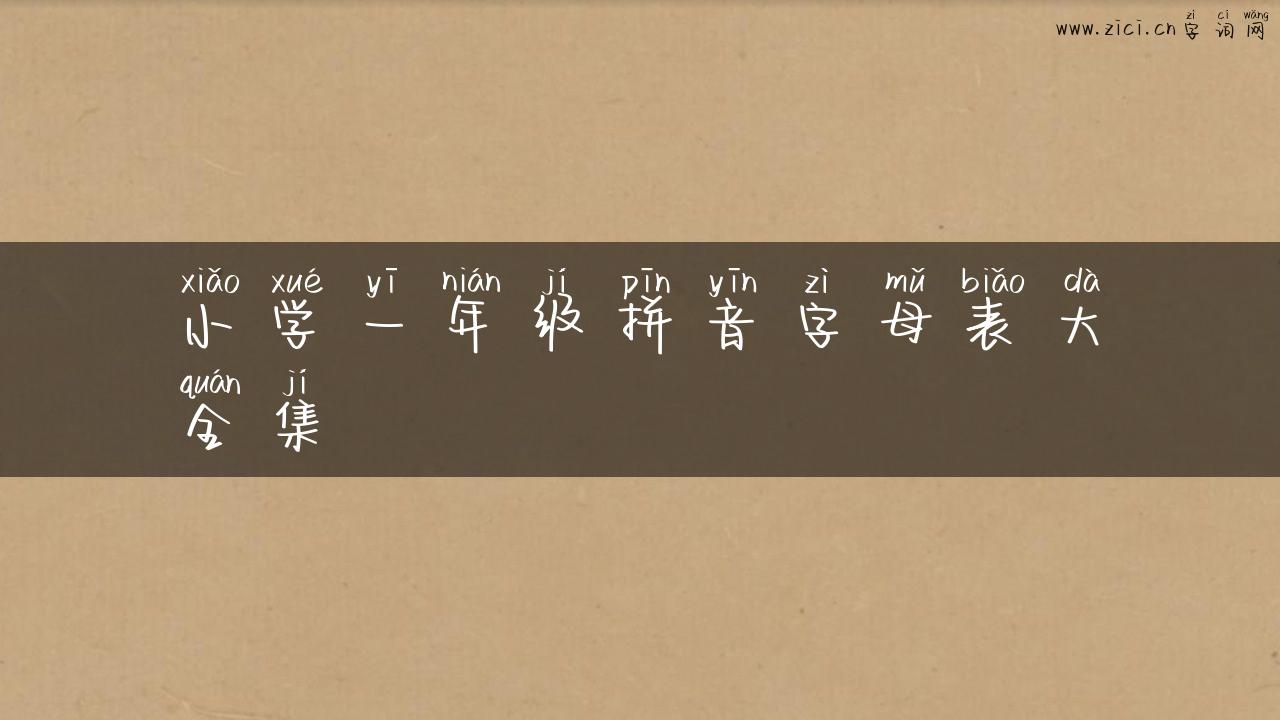 zì cí wǎng
www.zici.cn 字 词 网
xiǎo xué yī nián jí pīn yīn zì mǔ biǎo dà
小 学 一 年 级 拼 音 字 母 表 大
quán jí
全 集